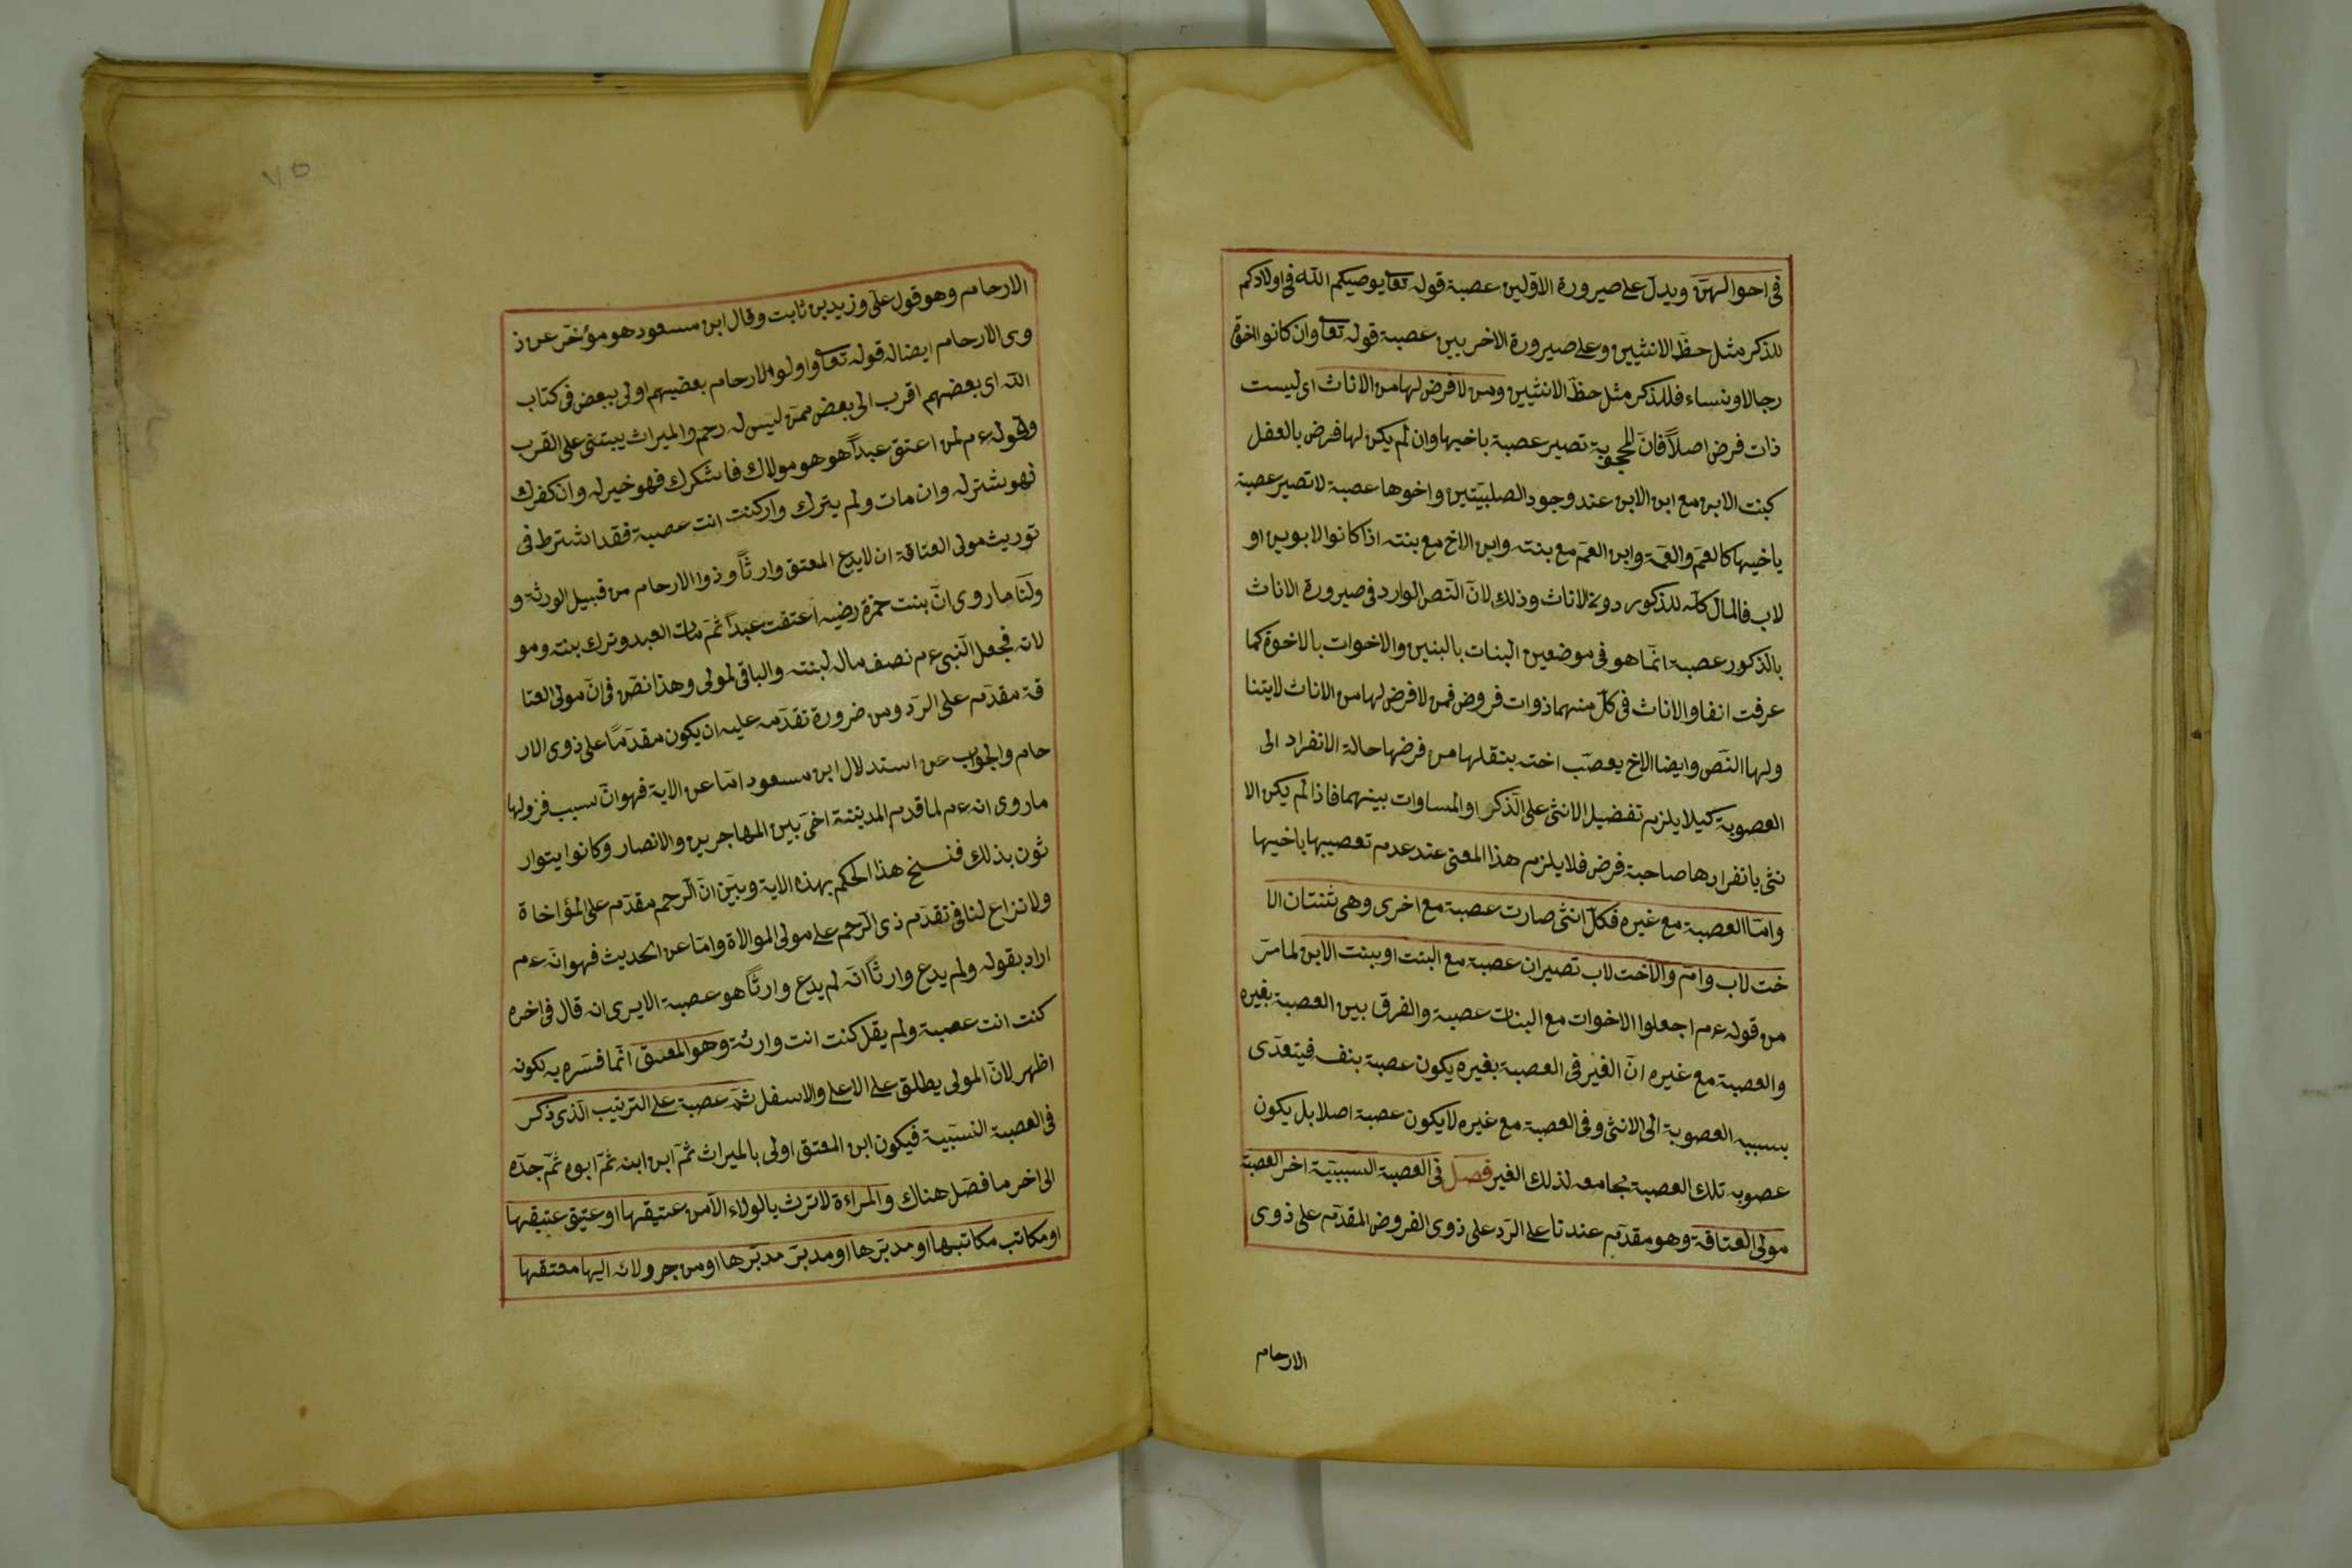 في احوالهنّ ويدلّ على صيرورة الاوّلين عصبة قوله تعا يوصيكم الله في اولادكم
للذكر مثل حظّ الانثيين وعلى صيرورة الاخريين عصبة قوله تعا وان كانوا اخوة
رجالا ونساء فللذكر مثل حظّ الانثيين ومن لا فرض لها من الاناث اى ليست
ذات فرض اصلاً فانّ المحجوبة تصير عصبة باخيها وان لم يكن لها فرض بالفعل
كبنت الابن مع ابن الابن عند وجود الصلبيّتين واخوها عصبة لا تصير عصبة
ياخيها كالعمّ والعمّة وابن العمّ مع بنته وابن الاخ مع بنته اذا كانوا لابوين او
لاب فالمال كلّه للذكور دون الاناث وذلك لانّ النّص الوارد في صيرورة الاناث
بالذكور عصبة انّما هو في موضعين البنات بالبنين والاخوات بالاخوة كما
عرفت انفا والاناث في كلّ منهما ذوات فروض فمن لا فرض لها من الاناث لا يتنا
ولها النّص وايضا الاخ يعصّب اخته بنقلها من فرضها حالة الانفراد الى
العصوبة كيلا يلزم تفضيل الانثى على الذّكر او المساوات بينهما فاذا لم يكن الا
نثى بانفرارها صاحبة فرض فلا يلزم هذا المعنى عند عدم تعصيبها باخيها
وامّا العصبة مع غيره فكلّ انثى صارت عصبة مع اخرى وهي ثنتان الا
خت لاب وامّ والاخت لاب تصيران عصبة مع البنت او ببنت الابن لما مرّ
من قوله ءم اجعلوا الاخوات مع البنات عصبة والفرق بين العصبة بغيره
والعصبة مع غيره انّ الغير في العصبة بغيره يكون عصبة بنف فيتعدّى
بسببه العصوبة الى الانثى وفي العصبة مع غيره لا يكون عصبة اصلا بل يكون
عصوبه تلك العصبة مجامعه لذلك الغير فصل في العصبة السببيّة اخر العصبة
مولى العتاقة وهو مقدّم عندنا على الرّد على ذوى الفروض المقدّم على ذوى
الارحام
الارحام وهو قول على وزيد بن ثابت وقال ابن مسعود هو مؤخّر عن ذ
وى الارحام ايضا له قوله تعا واولوا الارحام بعضهم اولى ببعض في كتاب
الله اى بعضهم اقرب الى بعض ممّن ليس له رحم والميراث يبتنى على القرب
وقوله ءم لمن اعتق عبداً هو هو مولاك فان شكرك فهو خير له وان كفرك
فهو شتر له وان مات ولم يترك وارثا كنت انت عصبة فقد اشترط في
توريث مولى العتاقة ان لا يدع المعتق وارثاً وذوا الارحام من قبيل الورثة و
ولنا ما روى انّ بنت حمزة رضيه اعتقت عبداً ثمّ مات العبد وترك بنته ومو
لاته فجعل النّبى ءم نصف ماله لبنته والباقى لمولى وهذا نصّ في انّ مولى العتا
قة مقدّم على الرّد ومن ضرورة تقدّمه عليه ان يكون مقدّماً على ذوى الار
حام والجواب عن استدلال ابن مسعود امّا عن الاية فهو انّ سبب نزولها
ما روى انه ءم لما قدم المدينة اخى بين المهاجرين والانصار وكانوا يتوار
ثون بذلك فنسخ هذا الحكم بهذه الاية وبيّن انّ الرّحم مقدّم على المؤاخاة
ولا نزاع لنا في تقدّم ذى الرّحم على مولى الموالاة وامّا عن الحديث فهو انّه ءم
اراد بقوله ولم يدع وارثاً انّه لم يدع وارثاً هو عصبة الا يرى انه قال في اخره
كنت انت عصبة ولم يقل كنت انت وارثة وهو المعتق انّما فسّره به لكونه
اظهر لانّ المولى يطلق على الاعلى والاسفل ثمّ عصبة على الترتيب الّذى ذكر
في العصبة النسبيّة فيكون ابن المعتق اولى بالميراث ثمّ ابن ابنه ثمّ ابوه ثمّ جدّه
الى اخر ما فصّل هناك والمراءة لا ترث بالولاء الّا من عتيقها او عتيق عتيقها
او مكاتب مكاتبها او مدبّرها او مدبّر مدبّرها او من جر ولائه اليها معتقها